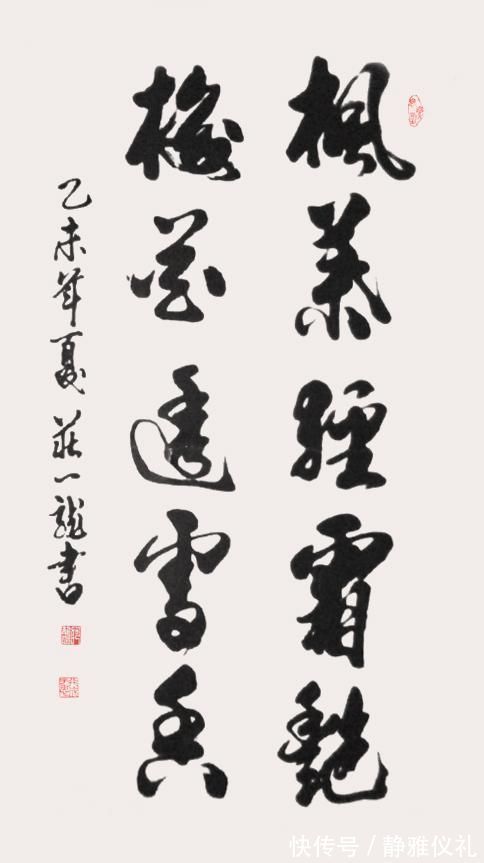 楓葉經霜艷
梅花透雪香
乙未年夏莊一龍書
快传号／静雅仪礼